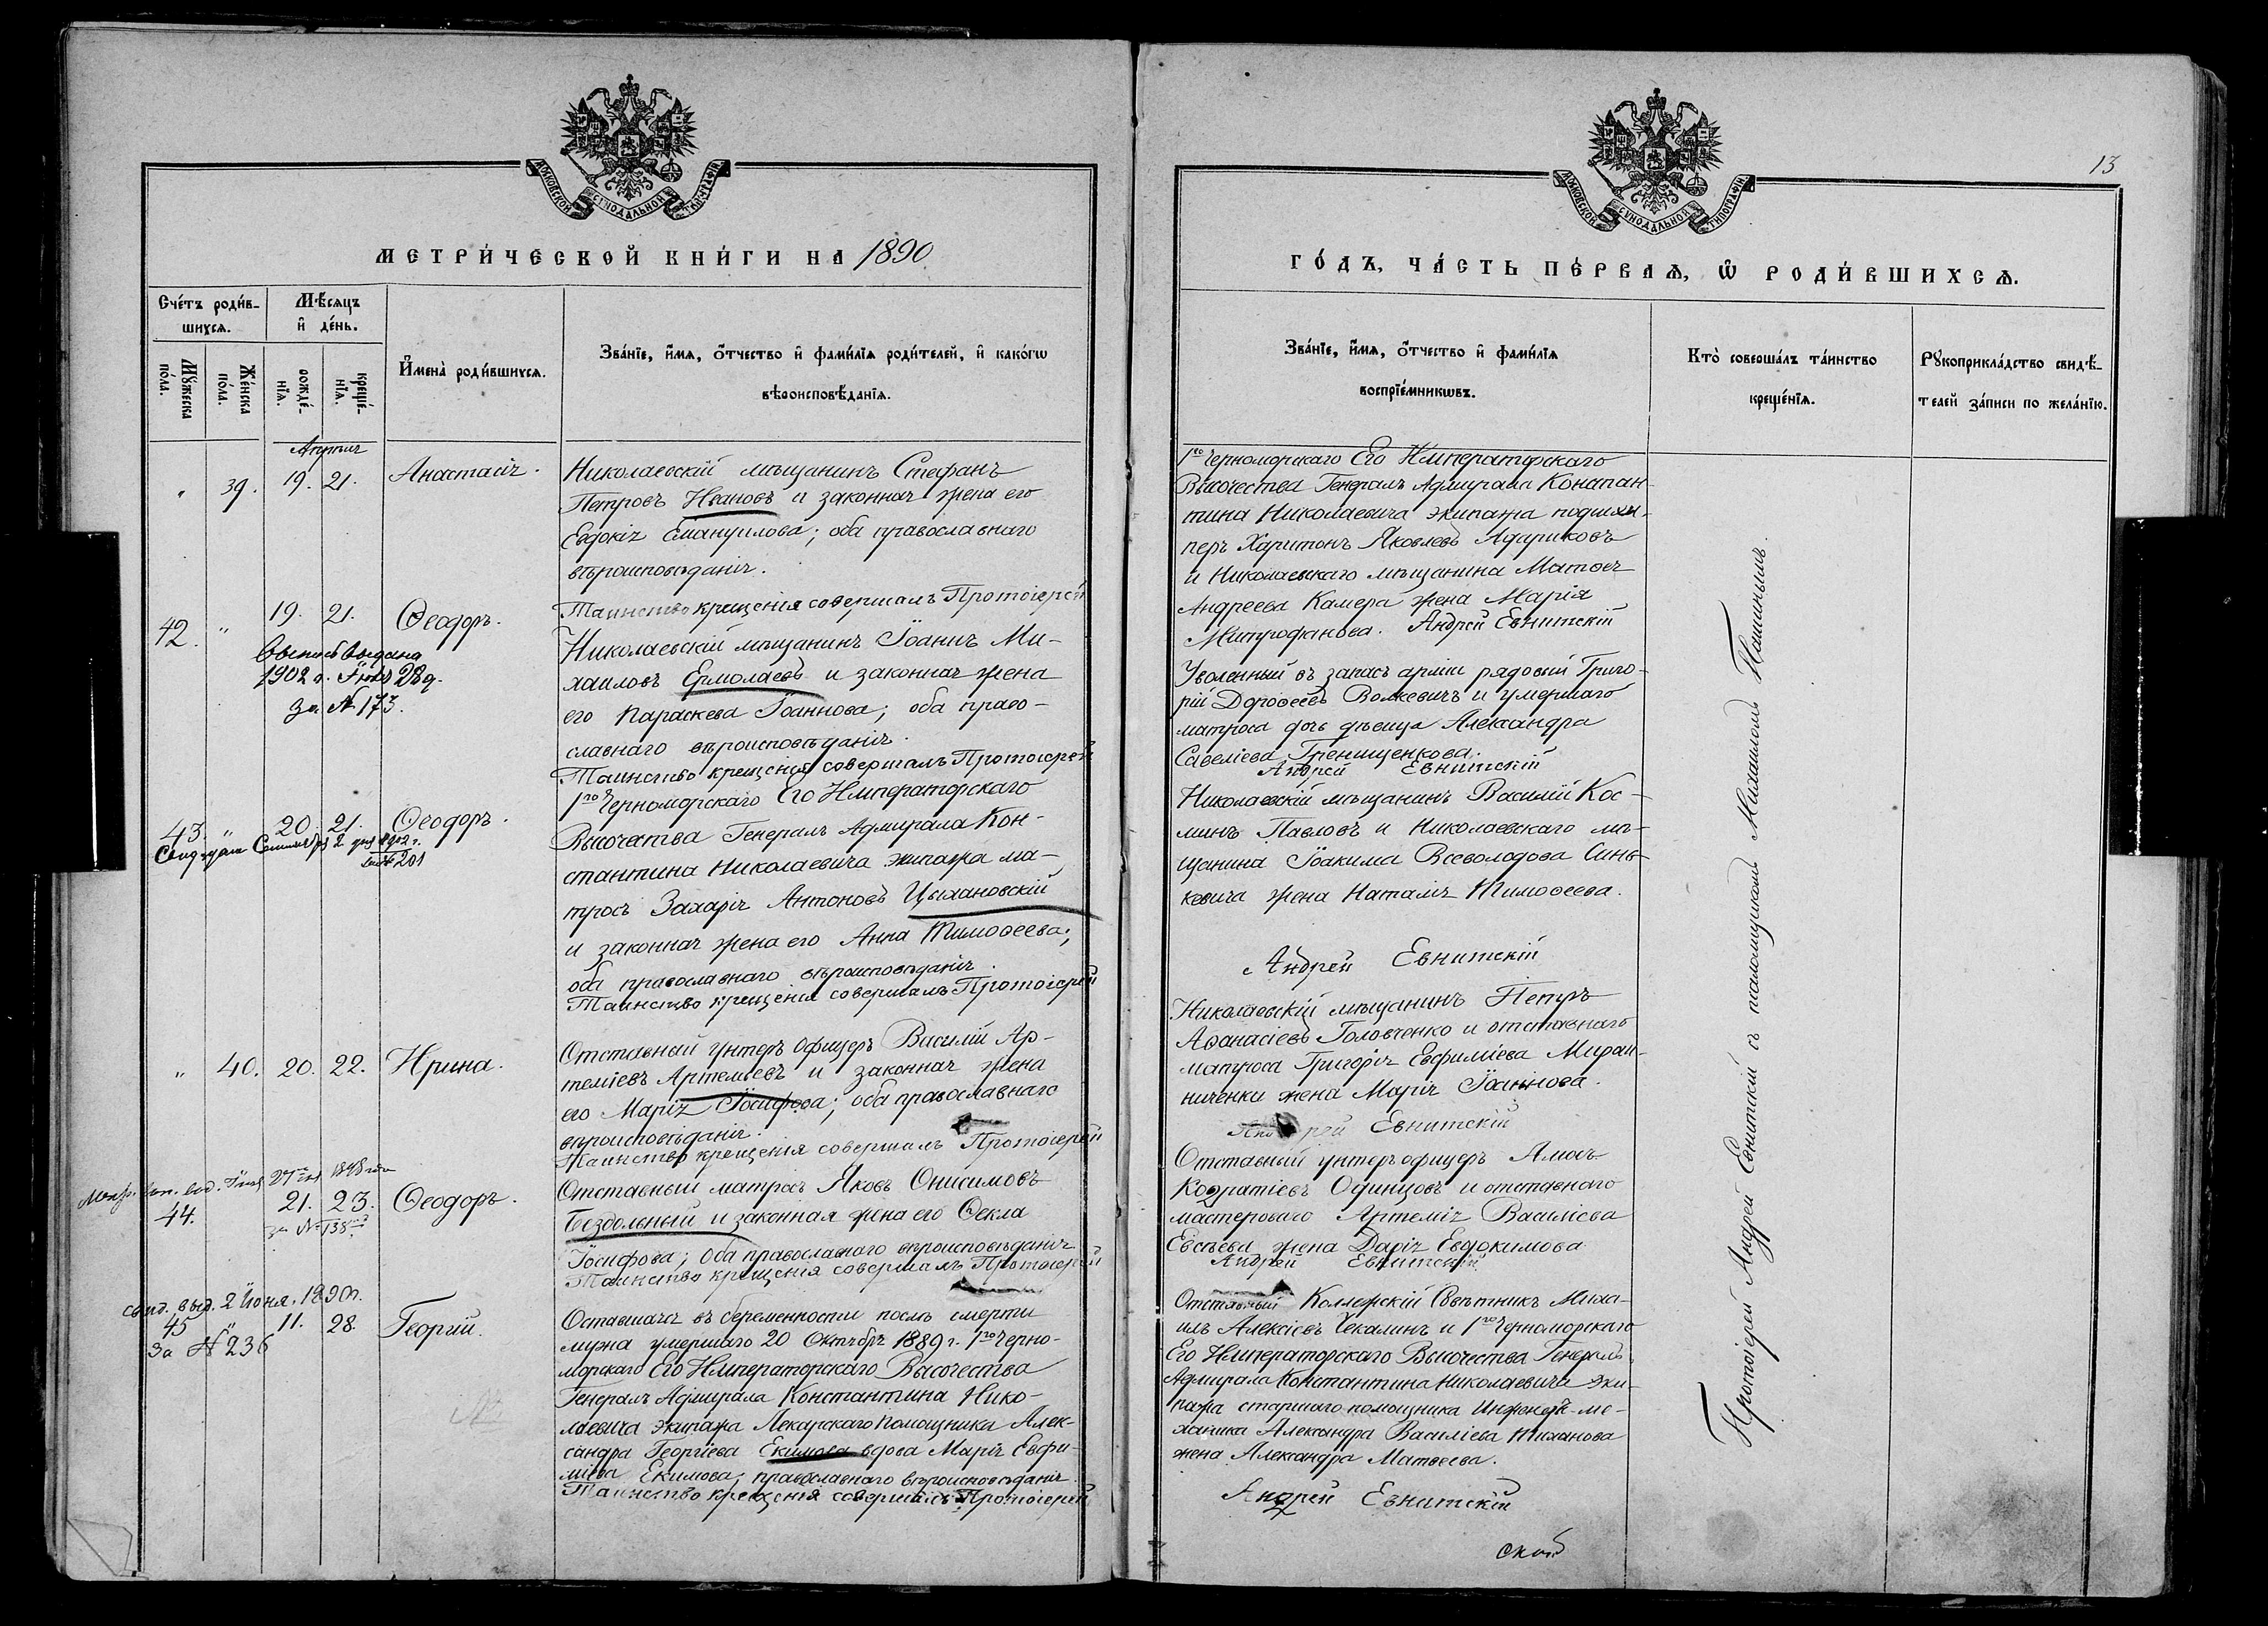 МОСКОВСКОЙ СѴНОДАЛЬНОЙ ТИПОГРАФІИ
МЕТРИ́ЧЕСКОЙ КНИ́ГИ НА 1890
Сче́тъ роди́в-
шихся.
Мѣ́сяцъ
и҆ де́нь.
Мꙋ́жеска по́ла.
Же́нска по́ла.
рожде́-нїѧ.
креще́-нїѧ.
И҆мена̀ роди́вшихсѧ.
Зва́нїе, и҆́мѧ, ѻ҆́тчество и҆ фами́лїѧ роди́телей, и҆ како́гѡ
вѣроисповѣ́данїѧ.
Апрѣль
" 39. 19. 21. Анастасія.
Николаевскій мѣщанинъ Стефанъ
Петровъ Ивановъ и законная жена его
Евдокія Емануилова; оба православнаго
вѣроисповѣданія.
Таинство крещенія совершалъ Протоіерей
42. " 19. 21. Ѳеодоръ.
Выпись выдана
1902 г. Іюля 28 д.
за № 173.
Николаевскій мѣщанинъ Іоаннъ Ми-
хаиловъ Ермолаевъ и законная жена
его Параскева Іоаннова; оба право-
славнаго вѣроисповѣданія.
Таинство крещенія совершалъ Протоіерей
43. " 20. 21. Ѳеодоръ.
Сентября 2 дня 1902 г.
за № 201
1го Черноморскаго Его Императорскаго
Высочества Генералъ Адмирала Кон-
стантина Николаевича экипажа ма-
тросъ Захарія Антоновъ Цыхановскій
и законная жена его Анна Тимоѳеева;
оба православнаго вѣроисповѣданія.
Таинство крещенія совершалъ Протоіерей
" 40. 20. 22. Ирина.
Отставный унтеръ офицеръ Василій Ар-
теміевъ Артемьевъ и законная жена
его Марія Іосифова; оба православнаго
вѣроисповѣданія.
Таинство крещенія совершалъ Протоіерей
44. 21. 23. Ѳеодоръ.
за № 138
Отставный матросъ Яковъ Онисимовъ
Бездольный и законная жена его Ѳекла
Іосифова; оба православнаго вѣроисповѣданія
Таинство крещенія совершалъ Протоіерей
свид. выд. 2 Іюня. 1890 г.
45 " 11. 28. Георгій.
За № 236
Оставшаяся въ беременности послѣ смерти
мужа умершаго 20 Октября 1889 г. 1го Черно-
морскаго Его Императорскаго Высочества
Генералъ Адмирала Константина Нико-
лаевича экипажа Лекарскаго помощника Алек-
сандра Георгіева Екимова вдова Марія Евфи-
міева Екимова; православнаго вѣроисповѣданія.
Таинство крещенія совершалъ Протоіерей
13
МОСКОВСКОЙ СѴНОДАЛЬНОЙ ТИПОГРАФІИ
ГО́ДЪ, ЧА́СТЬ ПЕ́РВАѦ, Ѡ҆ РОДИ́ВШИХСѦ.
Зва́нїе, и҆́мѧ, ѻ҆́тчество и҆ фами́лїѧ
воспрїе́мникѡвъ.
Кто̀ соверша́лъ та́инство
креще́нїѧ.
Рꙋкоприкла́дство свидѣ́-
телей за́писи по жела́нїю.
1го Черноморскаго Его Императорскаго
Высочества Генералъ Адмирала Констан-
тина Николаевича экипажа подшки-
перъ Харитонъ Яковлевъ Адариковъ
и Николаевскаго мѣщанина Матѳея
Андреева Камера жена Марія
Митрофанова. Андрей Евнитскій
Уволенный въ запасъ арміи рядовый Григо-
рій Дороѳеевъ Волкевичъ и умершаго
матроса дочь дѣвица Александра
Савеліева Гренищенкова.
Андрей Евнитскій
Николаевскій мѣщанинъ Василій Кос-
минъ Павловъ и Николаевскаго мѣ-
щанина Іоакима Всеволодова Синь-
кевича жена Наталія Тимоѳеева.
Андрей Евнитскій
Николаевскій мѣщанинъ Петръ
Аѳанасіевъ Головченко и отставнаго
матроса Григорія Евфиміева Миран-
ниченки жена Марія Іоаннова.
Андрей Евнитскій
Отставный унтеръ офицеръ Амосъ
Кодратіевъ Одинцовъ и отставнаго
мастероваго Артемія Василіева
Евсѣева жена Дарія Евдокимова
Андрей Евнитскій
Отставный Коллежскій Совѣтникъ Миха-
илъ Алексіевъ Чекалинъ и 1го Черноморскаго
Его Императорскаго Высочества Генералъ
Адмирала Константина Николаевича эки-
пажа старшаго помощника Инженеръ-ме-
ханика Александра Василіева Тиханова
жена Александра Матвеева.
Андрей Евнитскій
Протоіерей Андрей Евнитскій съ псаломщикомъ Михаиломъ Пашинымъ.